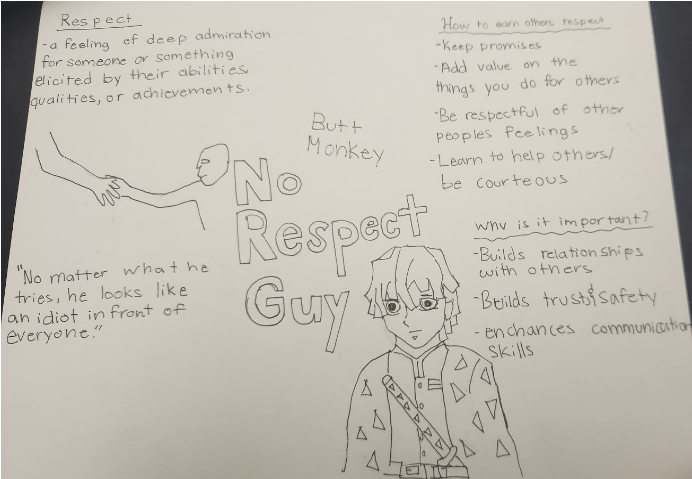 Respect
-a feeling of deep admiration
for someone or something
elicited by their abilities,
qualities, or achievements.
Butt
Monkey
No
Respect
Guy
"No matter what he
tries, he looks like
an idiot in front of
everyone."
How to earn others respect
-Keep promises
-Add value on the
things you do for others
-Be respectful of other
peoples feelings
-Learn to help others/
be courteous
why is it important?
-Builds relationships
with others
-Builds trust & Safety
-enchances communication
skills